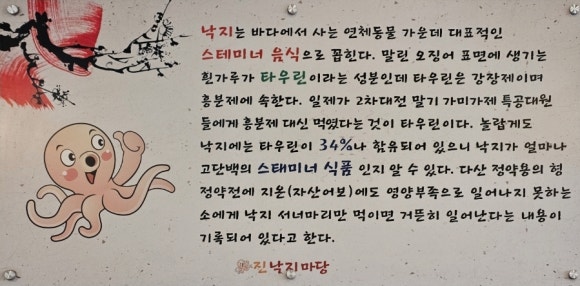 낙지는 바다에서 사는 연체동물 가운데 대표적인
스테미너 음식으로 꼽힌다. 말린 오징어 표면에 생기는
흰가루가 타우린이라는 성분인데 타우린은 강장제이며
흥분제에 속한다. 일제가 2차대전 말기 가미가제 특공대원
들에게 흥분제 대신 먹였다는것이 타우린이다. 놀랍게도
낙지에는 타우린이 34%나 함유되어 있으니 낙지가 얼마나
고단백의 스태미너 식품 인지 알 수 있다. 다산 정약용의 형
정약전에 지온(자산어보)에도 영양부족으로 일어나지 못하는
소에게 낙지 서너마리만 먹이면 거뜬히 일어난다는 내용이
기록되어 있다고 한다.
진낙지마당